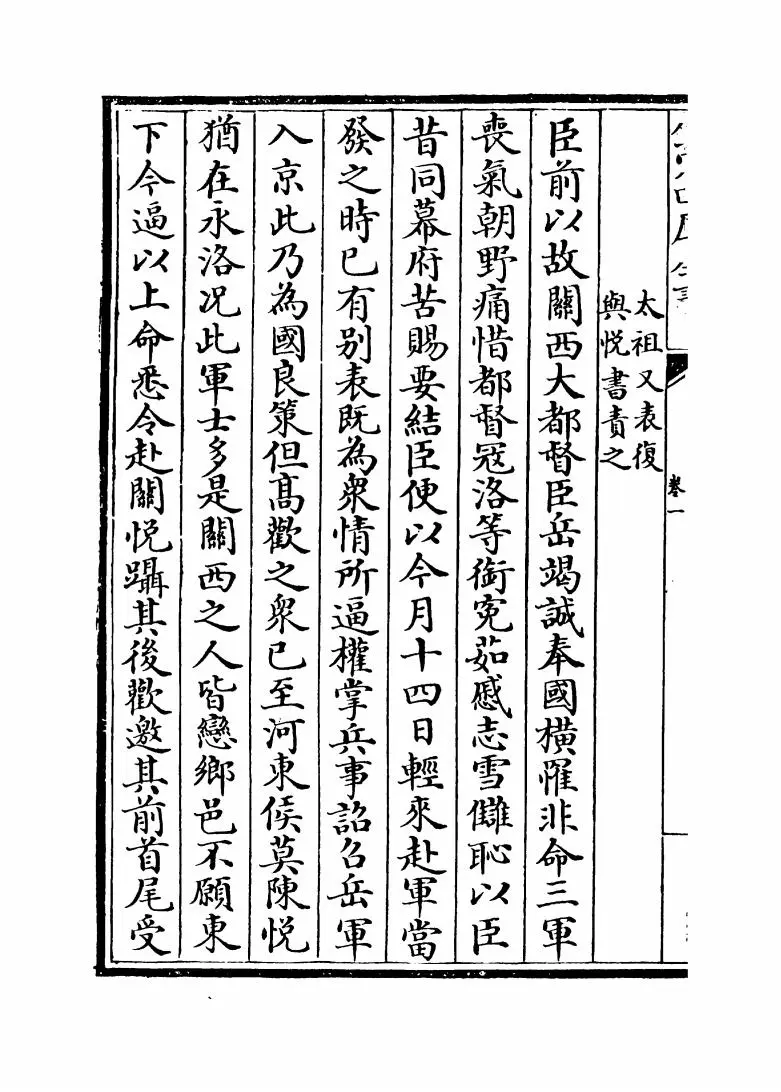 太祖又表復
與悅書責之
臣前以故關西大都督臣岳竭誠奉國橫罹非命三軍
喪氣朝野痛惜都督冦洛等銜寃茹慼志雪讎恥以臣
昔同幕府苦賜要結臣便以今月十四日輕來赴軍當
發之時已有别表既為衆情所逼權掌兵事詔召岳軍
入京此乃為國良策但髙歡之衆已至河東侯莫陳悅
猶在永洛况此軍士多是關西之人皆戀鄉邑不願東
下今逼以上命悉令赴關悅躡其後歡邀其前首尾受
卷一